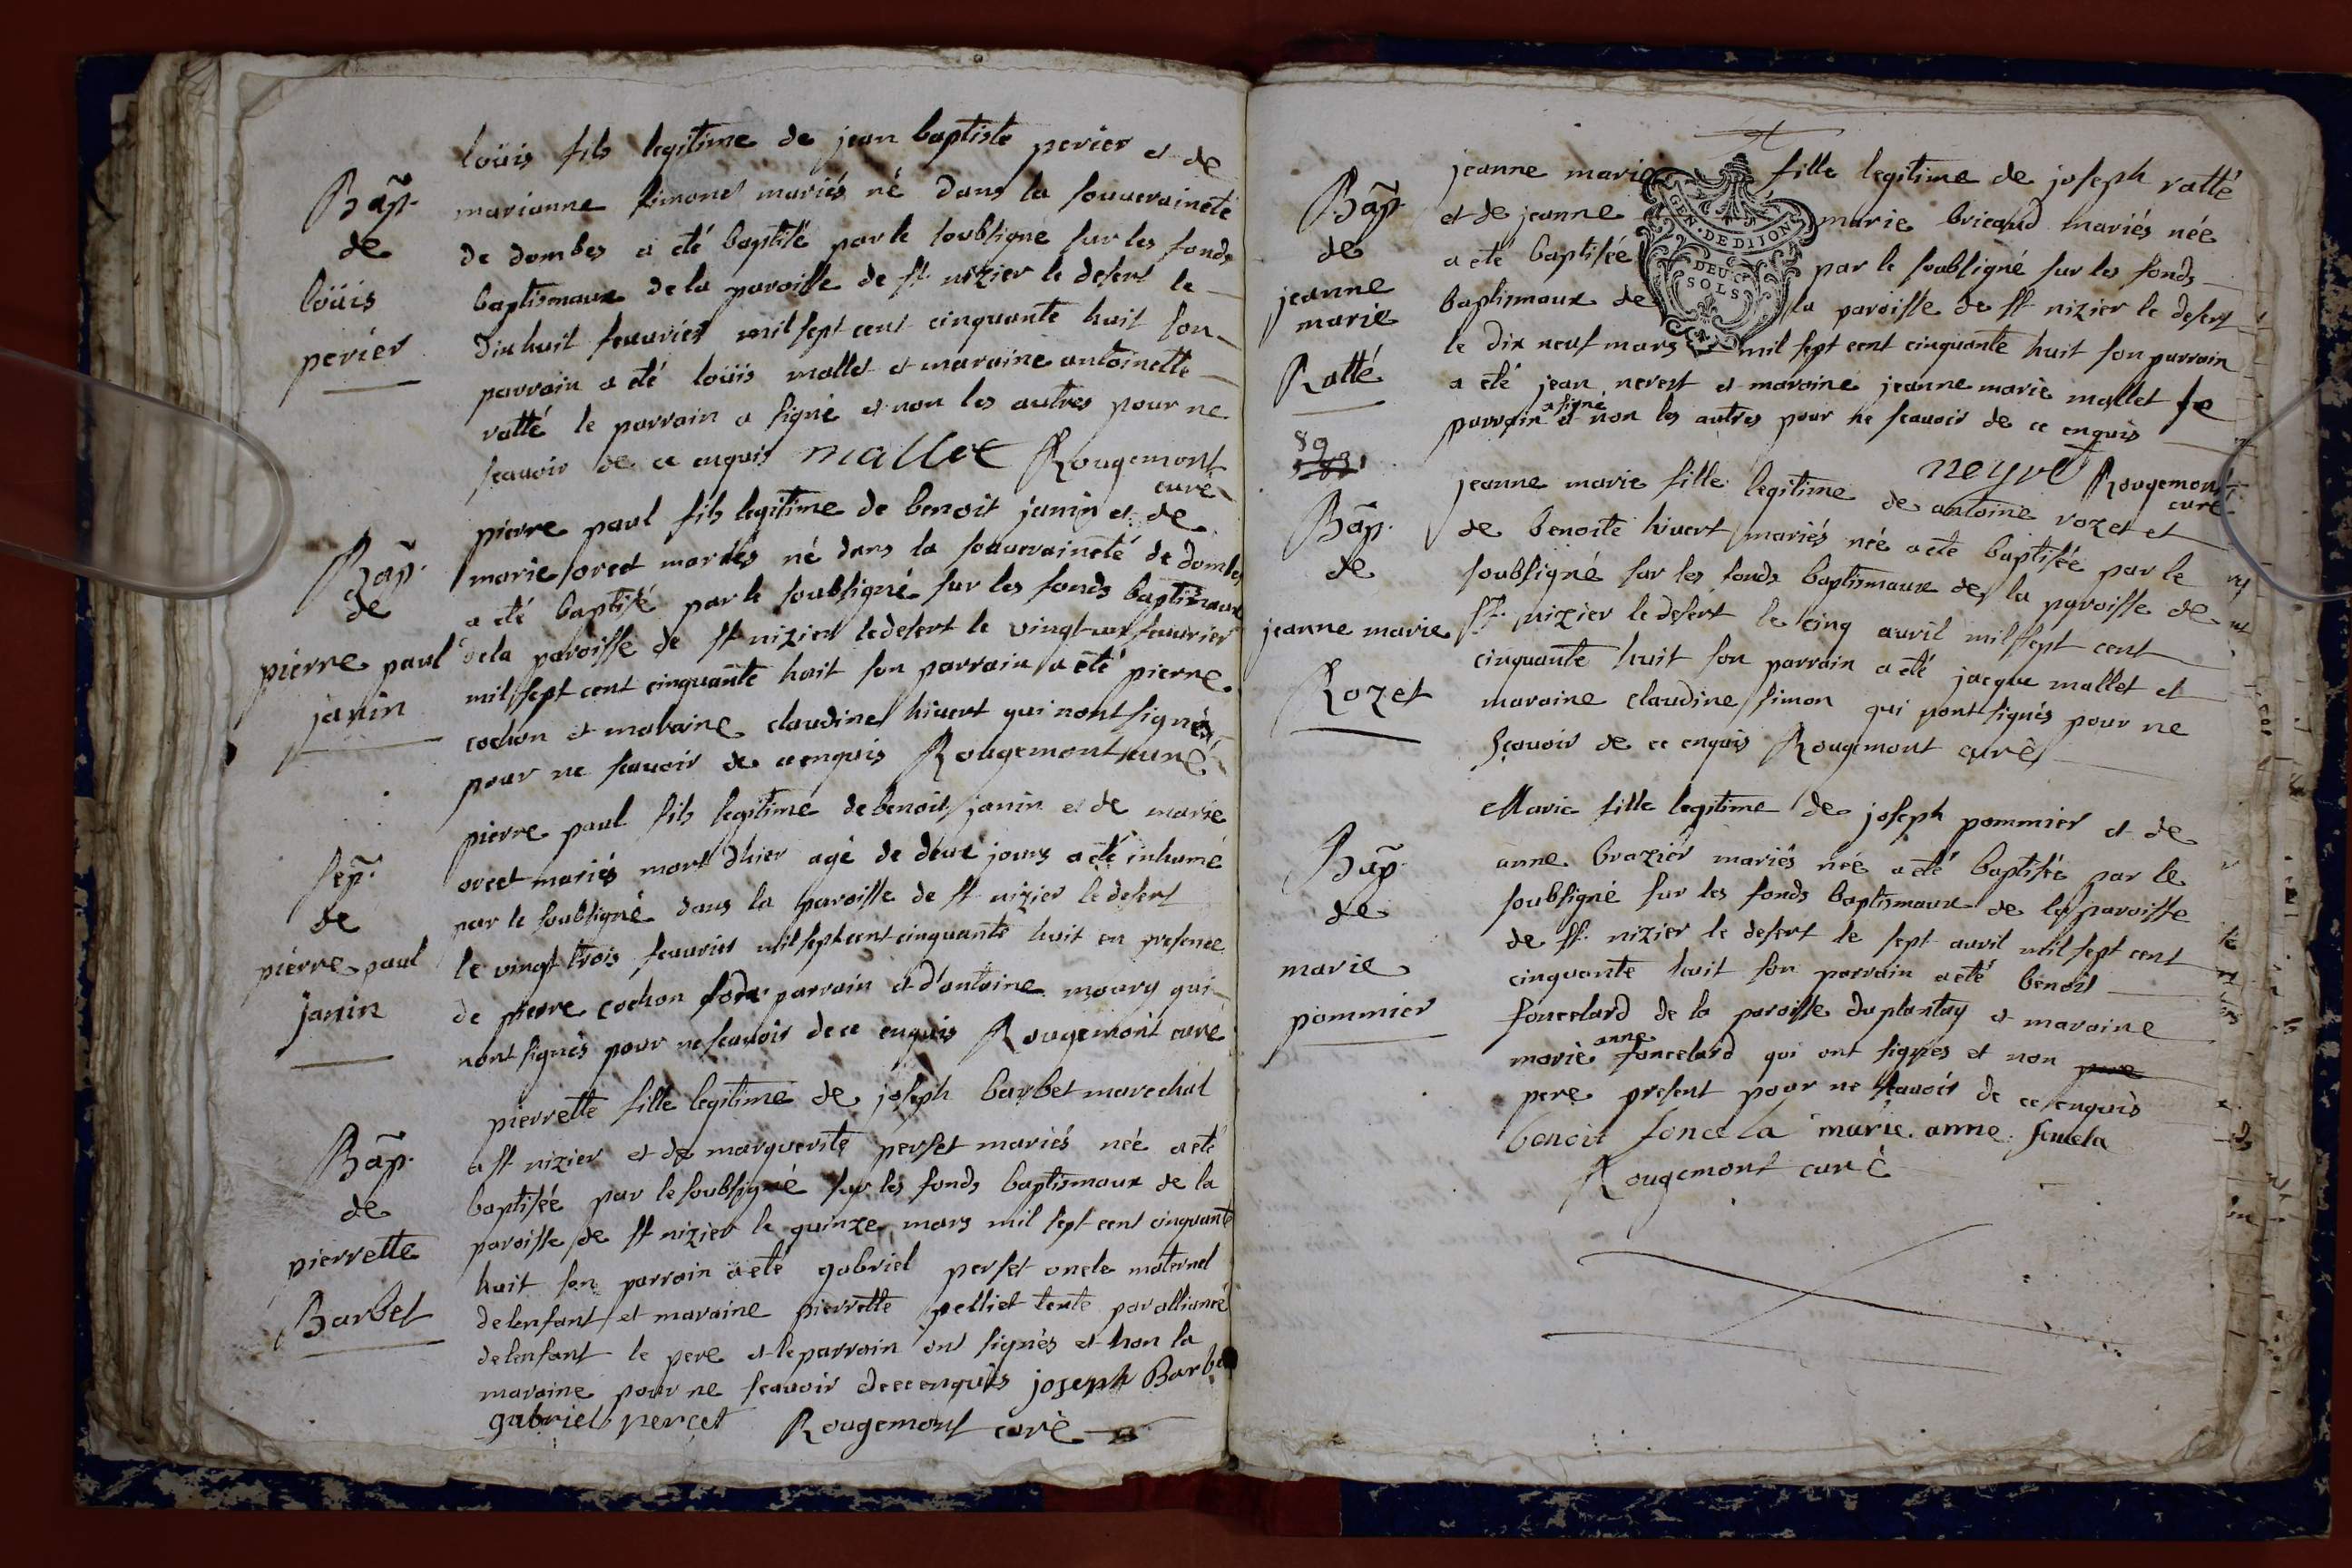 Bap̃.
de
loüis
periér
loüis fils legitime de jean baptiste perier et de
marianne simonet mariés né dans la souueraineté
de dombes a eté baptisé par le soubsigne sur les fonds
baptismaux de la paroisse de st nizier le desert le
dix huit feuuriér mil sept cent cinquante huit son
parrain a eté loüis mallet et maraine antoinette
ratté le parrain a signé et non les autres pour ne
scauoir de ce enquis mallet Rougemont
curé
Bap̃.
de
pierre paul
janin
pierre paul fils legitime de benoit janin et de
marie orcet mariés né dans la souueraineté de dombes
a eté baptisé par le soubsigné sur les fonds baptismaux
de la paroisse de st nizier le desert le vingt un feuurier
mil sept cent cinquante huit son parrain a eté pierre
cochon et maraine claudine hiuert qui nont signés
pour ne scauoir de ce enquis Rougemont curé
sep̃.
de
pierre paul
janin
pierre paul fils legitime de benoit janin et de marie
orcet mariés mort dhier agé de deux jours a eté inhumé
par le soubsigné dans la paroisse de st nizier le desert
le vingt trois feuurier mil sept cent cinquante huit en presence
de pierre cochon parrain et d'antoine mourg qui
nont signés pour ne scauoir de ce enquis Rougemont curé
Bap̃.
de
pierrette
Barbet
pierrette fille legitime de joseph barbet marechal
a st nizier et de marguerite perset mariés née a eté
baptisée par le soubsigné sur les fonds baptismaux de la
paroisse de st nizier le quinze mars mil sept cent cinquante
huit son parrain a eté gabriel perset oncle maternel
de lenfant et maraine pierrette pelliet tente par alliance
de lenfant le pere et le parrain ont signés et non la
maraine pour ne scauoir de ce enquis joseph Barbe
gabriel percet Rougemont curé
GEN. DE DIJON
DEUX
SOLS
Bap̃.
de
jeanne
marie
Ratté
jeanne marie fille legitime de joseph ratté
et de jeanne marie bricaud mariés née
a eté baptisée par le soubsigné sur les fonds
baptismaux de la paroisse de st nizier le desert
le dix neuf mars mil sept cent cinquante huit son parrain
a eté jean nerest et maraine jeanne marie mallet le
parrain a signé et non les autres pour ne scauoir de ce enquis
neyret Rougemont
curé
89
Bap̃.
de
jeanne marie
Rozet
jeanne marie fille legitime de antoine rozet et
de benoite hiuert mariés née a eté baptisée par le
soubsigné sur les fonds baptismaux de la paroisse de
st. nizier le desert le cinq auril mil sept cent
cinquante huit son parrain a eté jacque mallet et
maraine claudine simon qui nont signés pour ne
scauoir de ce enquis Rougemont curé
Bap̃
de
marie
pommier
Marie fille legitime de joseph pommier et de
anne braziér mariés née a eté baptisée par le
soubsigné sur les fonds baptismaux de la paroisse
de st. nizier le desert le sept auril mil sept cent
cinquante huit son parrain a eté benoit
foncelard de la paroisse du plantay et maraine
marie anne foncelard qui ont signes et non
pere present pour ne scauoir de ce enquis
benoit foncela marie. anne. foncela
Rougemont curé